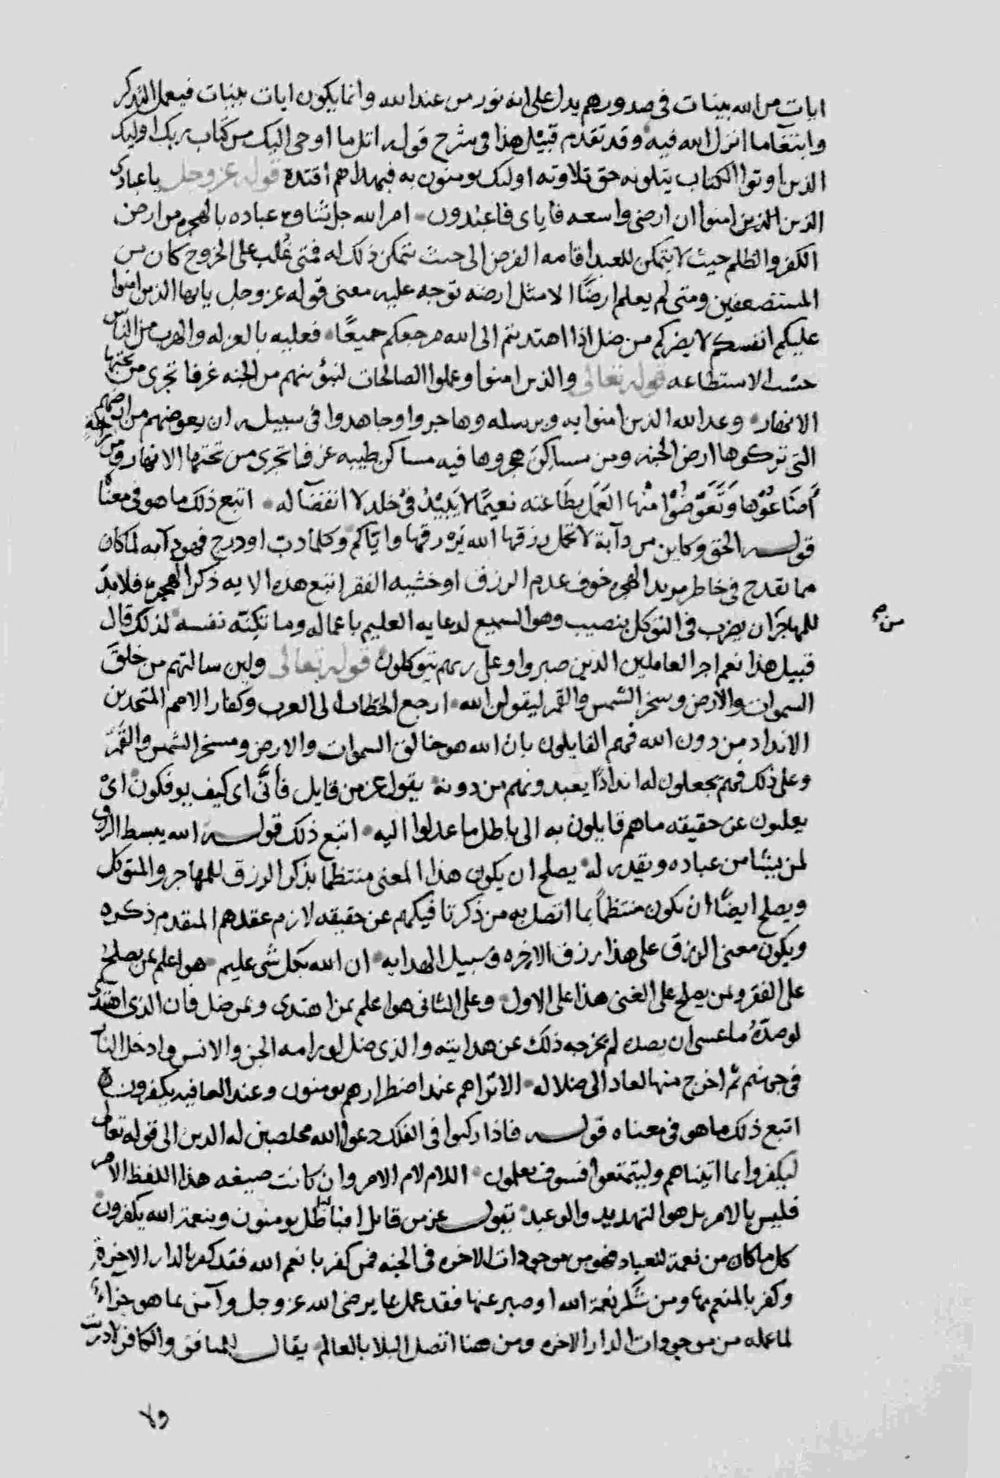 ايات من الله بينات في صدورهم يدل على انه نور من عند الله وانما يكون ايات بينات فيعمل التذكر
وابتغا ما انزل الله فيه وقد تقدم قبيل هذا في شرح قوله اتل ما اوحى اليك من كتاب ربك اوليك
الذين اوتوا الكتاب يتلونه حق تلاوته اوليك يومنون به فبهداهم اقتده قوله عز وجل ياعبادى
الذين امنوا ان ارضى واسعه فاياى فاعبدون امر الله جل ثناوه عباده بالهجره من ارض
الكفر والظلم حيث لا يتمكن للعبد اقامه الفرض الى حيث يتمكن ذلك له فمتى غلب على الخروج كان من
المستضعفين ومتى لم يعلم ارضا الا مثل ارضه توجه عليه معنى قوله عز وجل يايها الذين امنوا
عليكم انفسكم لا يضركم من ضل اذا اهتديتم الى الله مرجعكم جميعا فعليه بالعزله والهرب من الناس
حسب الاستطاعه قوله تعالى والذين امنوا وعملوا الصالحات لنبوئنهم من الجنه غرفا تجرى من تحتها
الانهار وعد الله الذين امنوا به وبرسله وهاجروا وجاهدوا في سبيله ان يعوضهم من ارضهم
التى تركوها ارض الجنه ومن مساكن هجروها فيه مساكن طيبه غرفا تجرى من تحتها الانهار ومن
أضاعوها وتعوضوا منها العمل بطاعته نعيما لا يبيد في خلد لا انقضآ له اتبع ذلك ما هو في معنا
قوله الحق وكاين من دآبة لا تحمل رزقها الله يرزقها واياكم وكلما دب او درج فهو دآبه لما كان
مما يقدح في خاطر مريد الهجره خوف عدم الرزق او خشيه الفقر اتبع هذه الايه ذكر الهجره فلا بد
للمهاجر ان يضرب في التوكل بنصيب وهو السميع لدعايه العليم باعماله وما تكنه نفسه لذلك قال
من صح
قبيل هذا نعم اجر العاملين الذين صبروا وعلى ربهم يتوكلون قوله تعالى ولين سالتهم من خلق
السموات والارض وسخر الشمس والقمر ليقولن الله ارجع الخطاب الى العرب وكفار الامم المتخذين
الانداد من دون الله فهم القايلون بان الله هو خالق السموات والارض ومسخر الشمس والقمر
وعلى ذلك فهم يجعلون له اندادا يعبدونهم من دونه يقول عز من قايل فأنى اى كيف يوفكون اى
يعدلون عن حقيقه ما هم قايلون به الى باطل ما عدلوا اليه اتبع ذلك قوله الله يبسط الرزق
لمن يشا من عباده ويقدر له يصلح ان يكون هذا المعنى منتظما بذكر الرزق للمهاجر والمتوكل
ويصلح ايضا ان يكون منتظما بما اتصل به من ذكر تافيكهم عن حقيقه لازم عقدهم المتقدم ذكره
ويكون معنى الرزق على هذا رزق الاخره وسبيل الهدايه ان الله بكل شى عليم هو اعلم بمن يصلح
على الفقر ومن يصلح على الغنى هذا على الاول وعلى الثانى هو اعلم بمن اهتدى وبمن ضل فان الذى اهتدى
لو صده ما عسى ان يصده لم يخرجه ذلك عن هدايته والذى ضل لو رامه الجن والانس وادخل النار
في جهنم ثم اخرج منها لعاد الى ضلاله الا تراهم عند اضطرارهم يومنون وعند العافيه يكفرون
اتبع ذلك ما هو في معناه قوله فاذا ركبوا في الفلك دعوا الله مخلصين له الدين الى قوله تعالى
ليكفروا بما اتيناهم وليتمتعوا فسوف يعلمون اللام لام الامر وان كانت صيغه هذا اللفظ الامر
فليس بالامر بل هو التهديد والوعيد يقول عز من قايل افبالباطل يومنون وبنعمة الله يكفرون
كل ما كان من نعمة للعباد فهو من موجودات الاخره في الجنه فمن كفر بانعم الله فقد كفر بالدار الاخرة
وكفر بالمنعم بها ومن شكر نعمة الله او صبر عنها فقد عمل بما يرضى الله عز وجل وآمن بما هو جزاء
لما عمله من موجودات الدار الاخره ومن هنا اتصل البلا بالعالم يقال للمنافق والكافر لا دريت
ولا